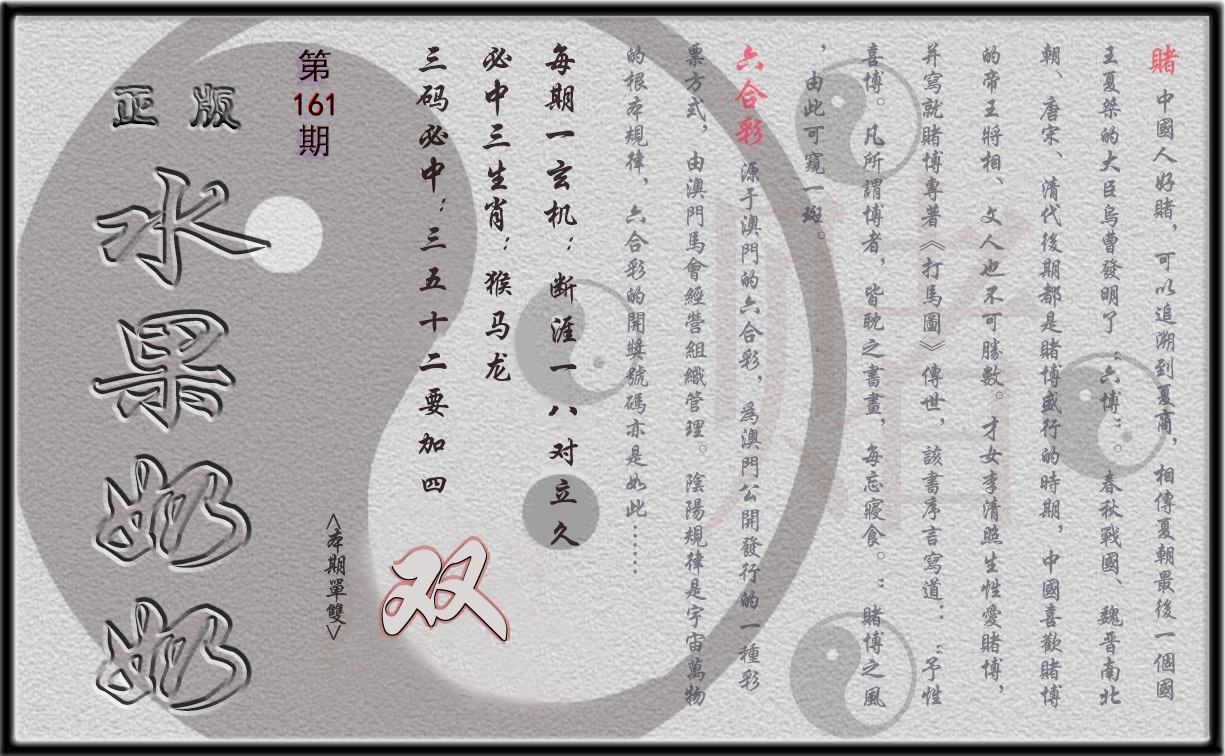 賭 中國人好賭，可以追溯到夏商，相傳夏朝最後一個國
王夏桀的大臣烏曹發明了“六博”。春秋戰國、魏晋南北
朝、唐宋、清代後期都是賭博盛行的時期，中國喜歡賭博
的帝王將相、文人也不可勝數。才女李清照生性愛賭博，
并寫就賭博專著《打馬圖》傳世，該書序言寫道：“予性
喜博。凡所謂博者，皆耽之晝晝，每忘寢食。”賭博之風
，由此可窺一斑。
六合彩 源于澳門的六合彩，爲澳門公開發行的一種彩
票方式，由澳門馬會經營組織管理。陰陽規律是宇宙萬物
的根本規律，六合彩的開獎號碼亦是如此……
賭
每期一玄机：断涯一八对立久
必中三生肖：猴马龙
三码必中：三五十二要加四
双
<本期單雙>
第
161
期
正版
水果奶奶